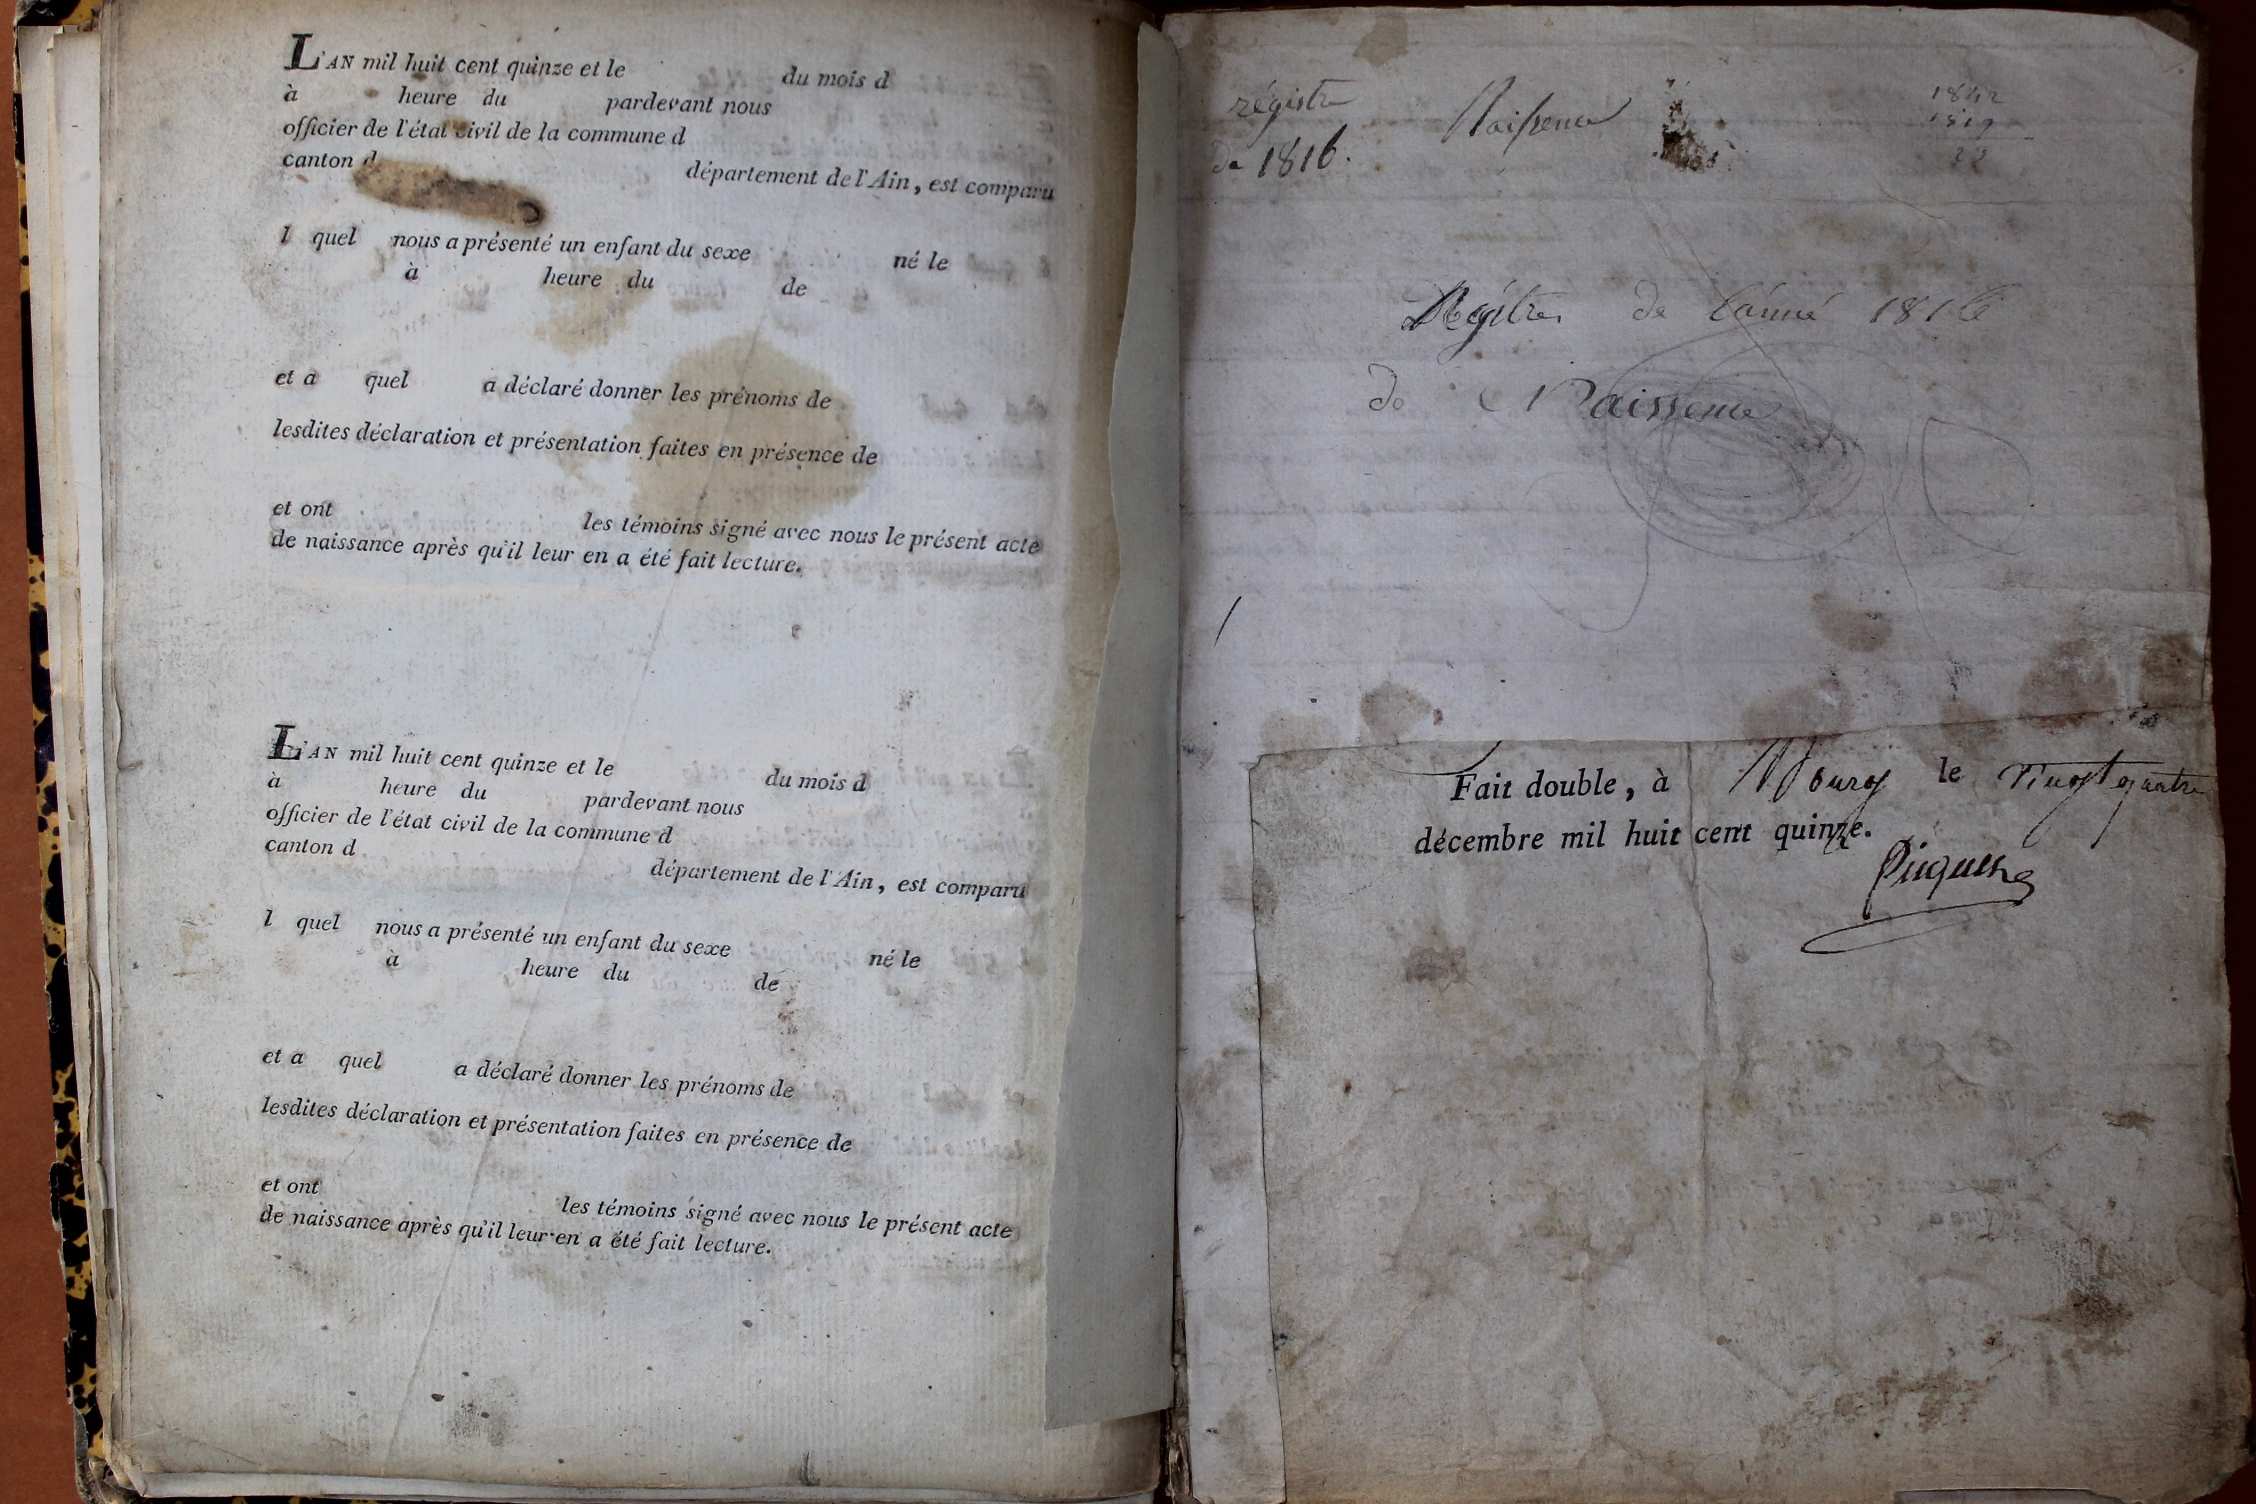 L'AN mil huit cent quinze et le du mois d
à heure du pardevant nous
officier de l'état civil de la commune d
canton d département de l'Ain, est comparu
l quel nous a présenté un enfant du sexe né le
à heure du de
et a quel a déclaré donner les prénoms de
lesdites déclaration et présentation faites en présence de
et ont les témoins signé avec nous le présent acte
de naissance après qu'il leur en a été fait lecture.
L'AN mil huit cent quinze et le du mois d
à heure du pardevant nous
officier de l'état civil de la commune d
canton d département de l'Ain, est comparu
l quel nous a présenté un enfant du sexe né le
à heure du de
et a quel a déclaré donner les prénoms de
lesdites déclaration et présentation faites en présence de
et ont les témoins signé avec nous le présent acte
de naissance après qu'il leur en a été fait lecture.
régistre Naissence
de 1816.
1842
1819
23
Régitre de l'année 1816
de Naissence
Fait double, à Bourg le vingt quatre
décembre mil huit cent quinze.